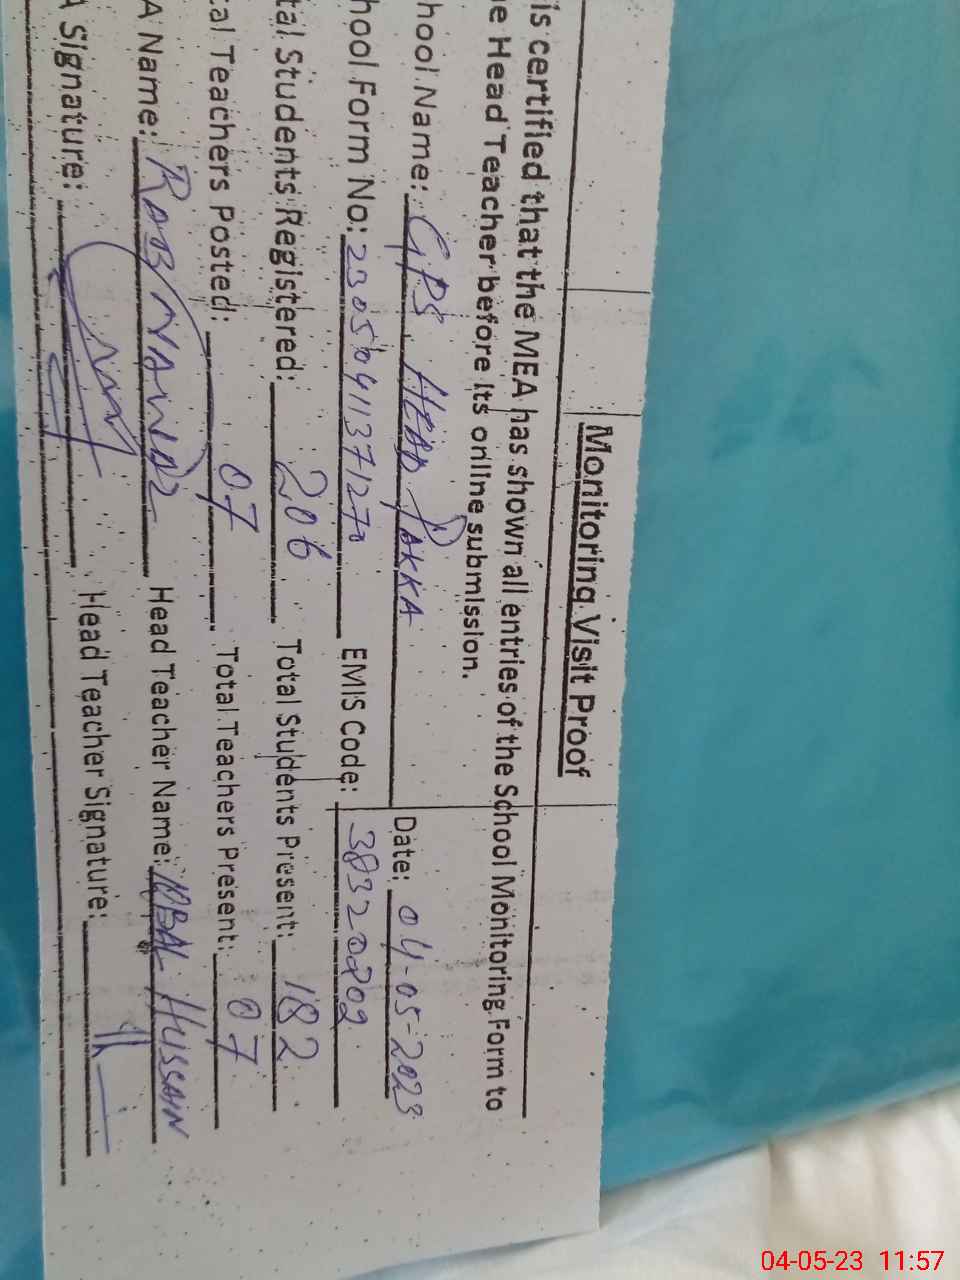 Monitoring Visit Proof
is certified that the MEA has shown all entries of the School Monitoring Form to
e Head Teacher before its online submission.
hool Name: GPS HEAD PAKKA Date: 04-05-2023
hool Form No: EMIS Code: 38320202
tal Students Registered: 206 Total Students Present: 182
tal Teachers Posted: 07 Total Teachers Present: 07
A Name: RAB NAWAZ Head Teacher Name: IQBAL HUSSAIN
A Signature: Head Teacher Signature:
04-05-23 11:57